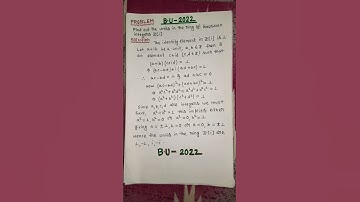 PROBLEM B.U-2022
Find out the units in the ring of Gaussian
integers Z[i]
Solution The identity element in Z[i] is 1
Let a+ib be a unit, a, b ∈ Z then ∃
an element c+id (c,d ∈ Z) such that
(a+ib)(c+id) = 1
⇒ (ac-bd)+i(ad+bc) = 1
⇒ ac-bd = 1 & ad+bc = 0
Now (ac-bd)²+(ad+bc)² = 1
⇒ a²c²+b²d²+a²d²+b²c² = 1
⇒ (a²+b²)(c²+d²) = 1
Since a,b,c,d are integers we must
have, a²+b² = 1 this implies either
a²=1, b²=0 or a²=0, b²=1
giving a = ±1, b = 0 or a=0, b = ±1
Hence the units in the ring Z[i] are
1, -1, i, -i
B.U-2022